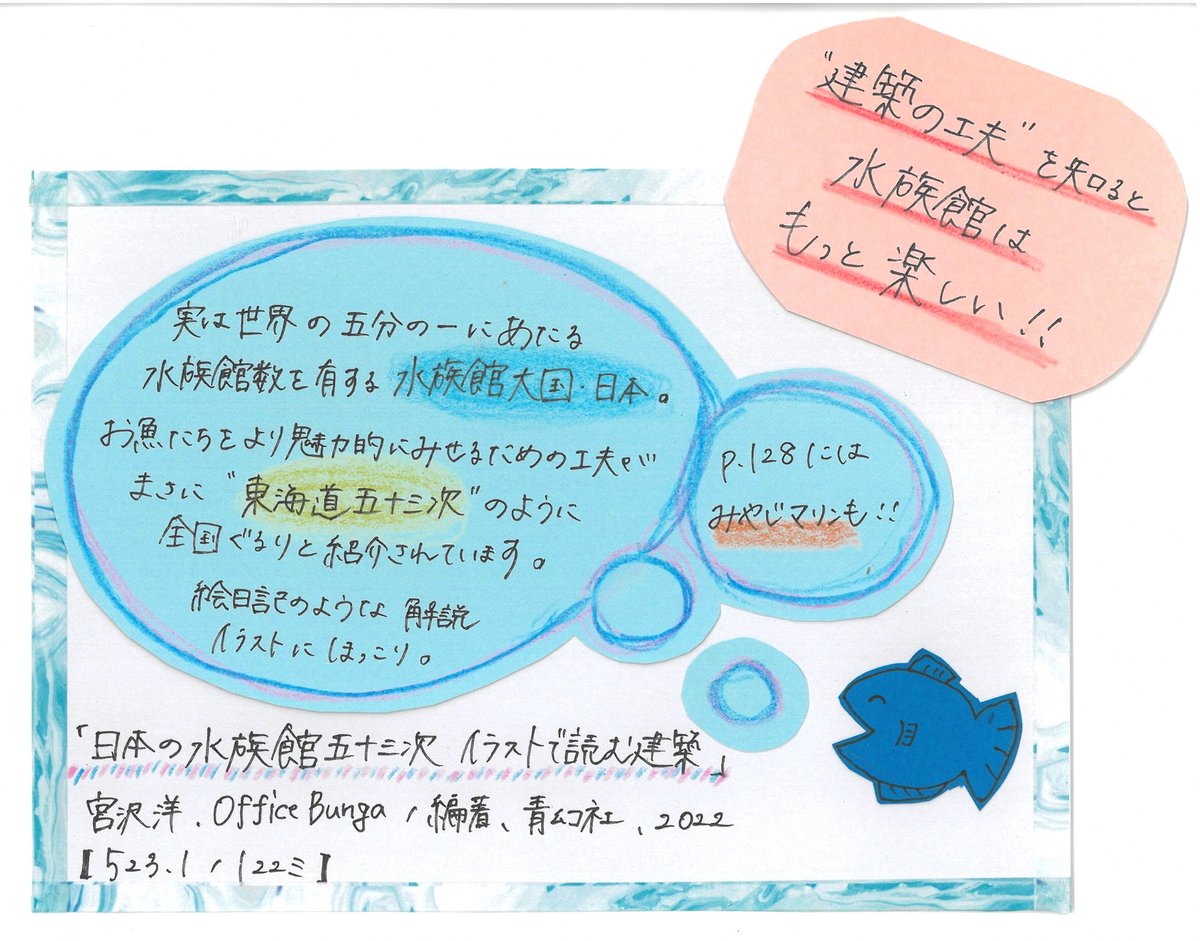 "建築の工夫"を知ると
水族館は
もっと楽しい!!
実は世界の五分の一にあたる
水族館数を有する 水族館大国・日本。
お魚たちをより魅力的にみせるための工夫が
まさに"東海道五十三次"のように
全国ぐるりと紹介されています。
絵日記のような 解説
イラストにほっこり。
p.128には
みやじマリンも!!
「日本の水族館五十三次 イラストで読む建築」
宮沢洋、Office Bunga/編著、青幻社、2022
【523.1/122ミ】